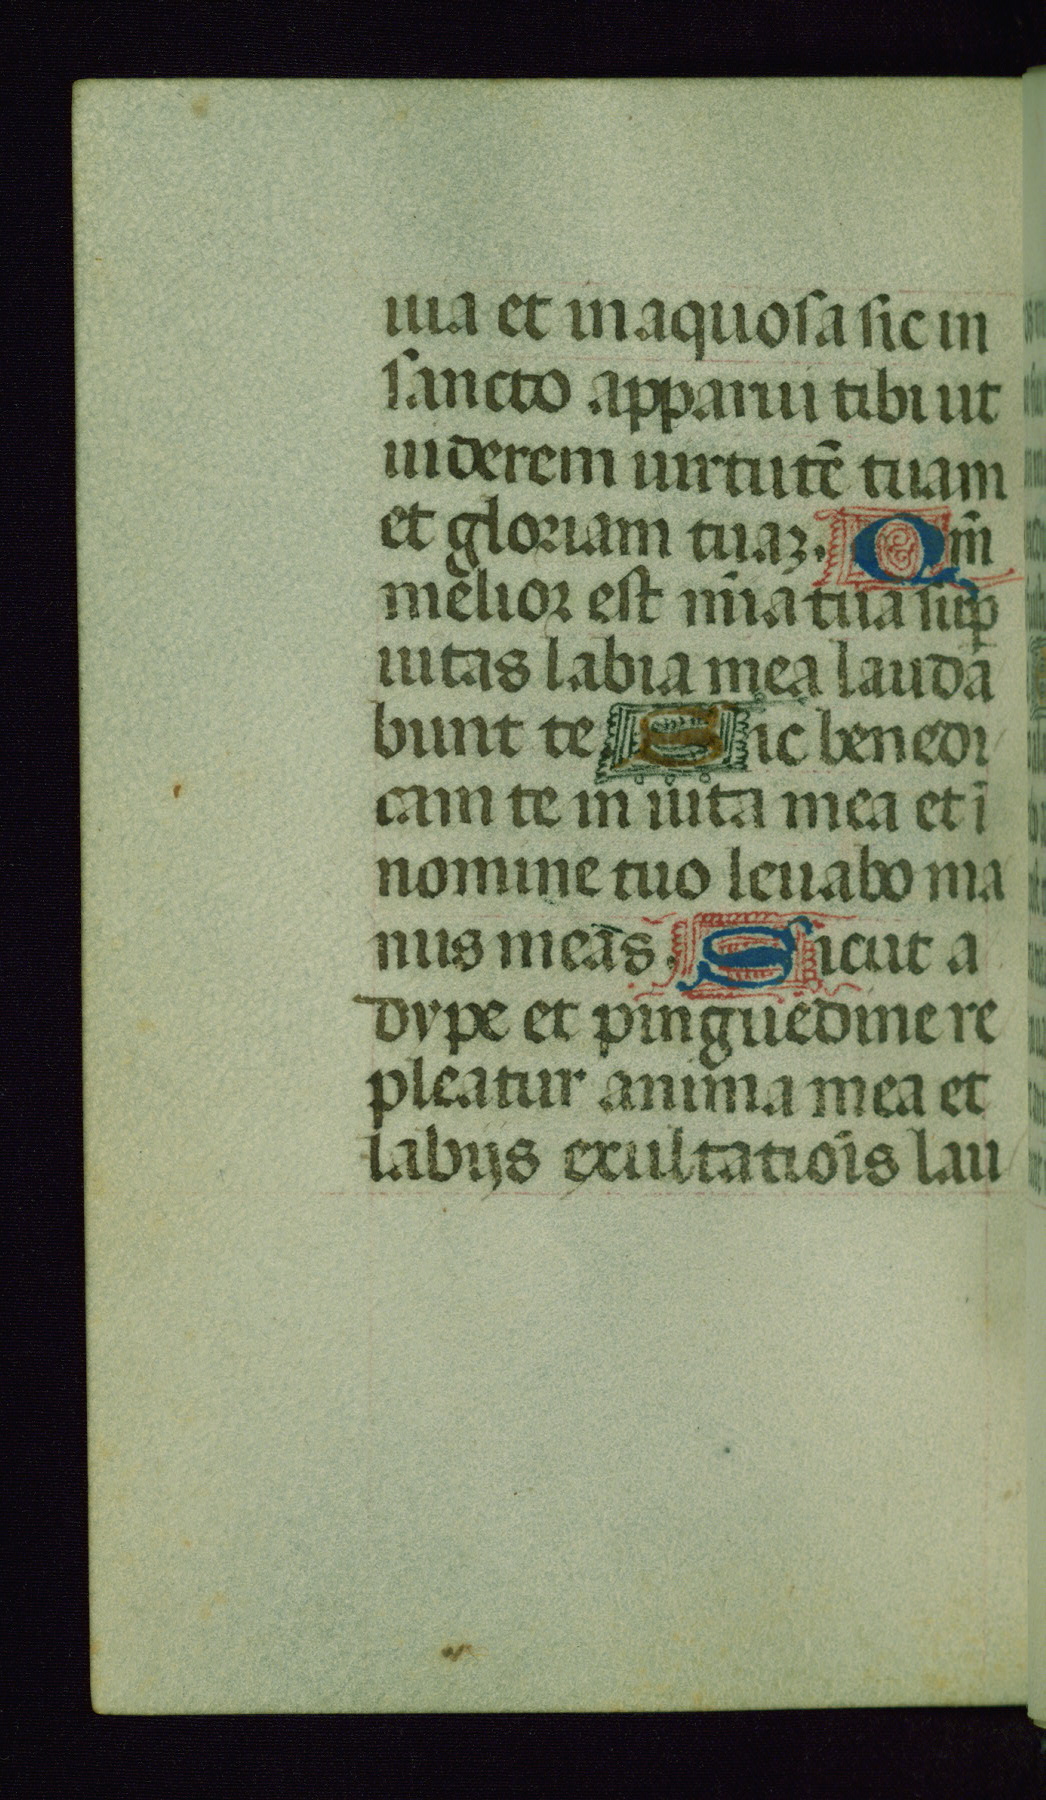 uia et inaquosa sic in
sancto apparui tibi ut
uiderem uirtutē tuam
et gloriam tuaʒ. Qm̄
melior est mīa tua sup̄
uitas labia mea laudā
bunt te Sic benedi
cam te in uita mea et ī
nomine tuo leuabo ma
nus meas. Sicut a
dype et pinguedine re
pleatur anima mea et
labijs exultatiōis lau